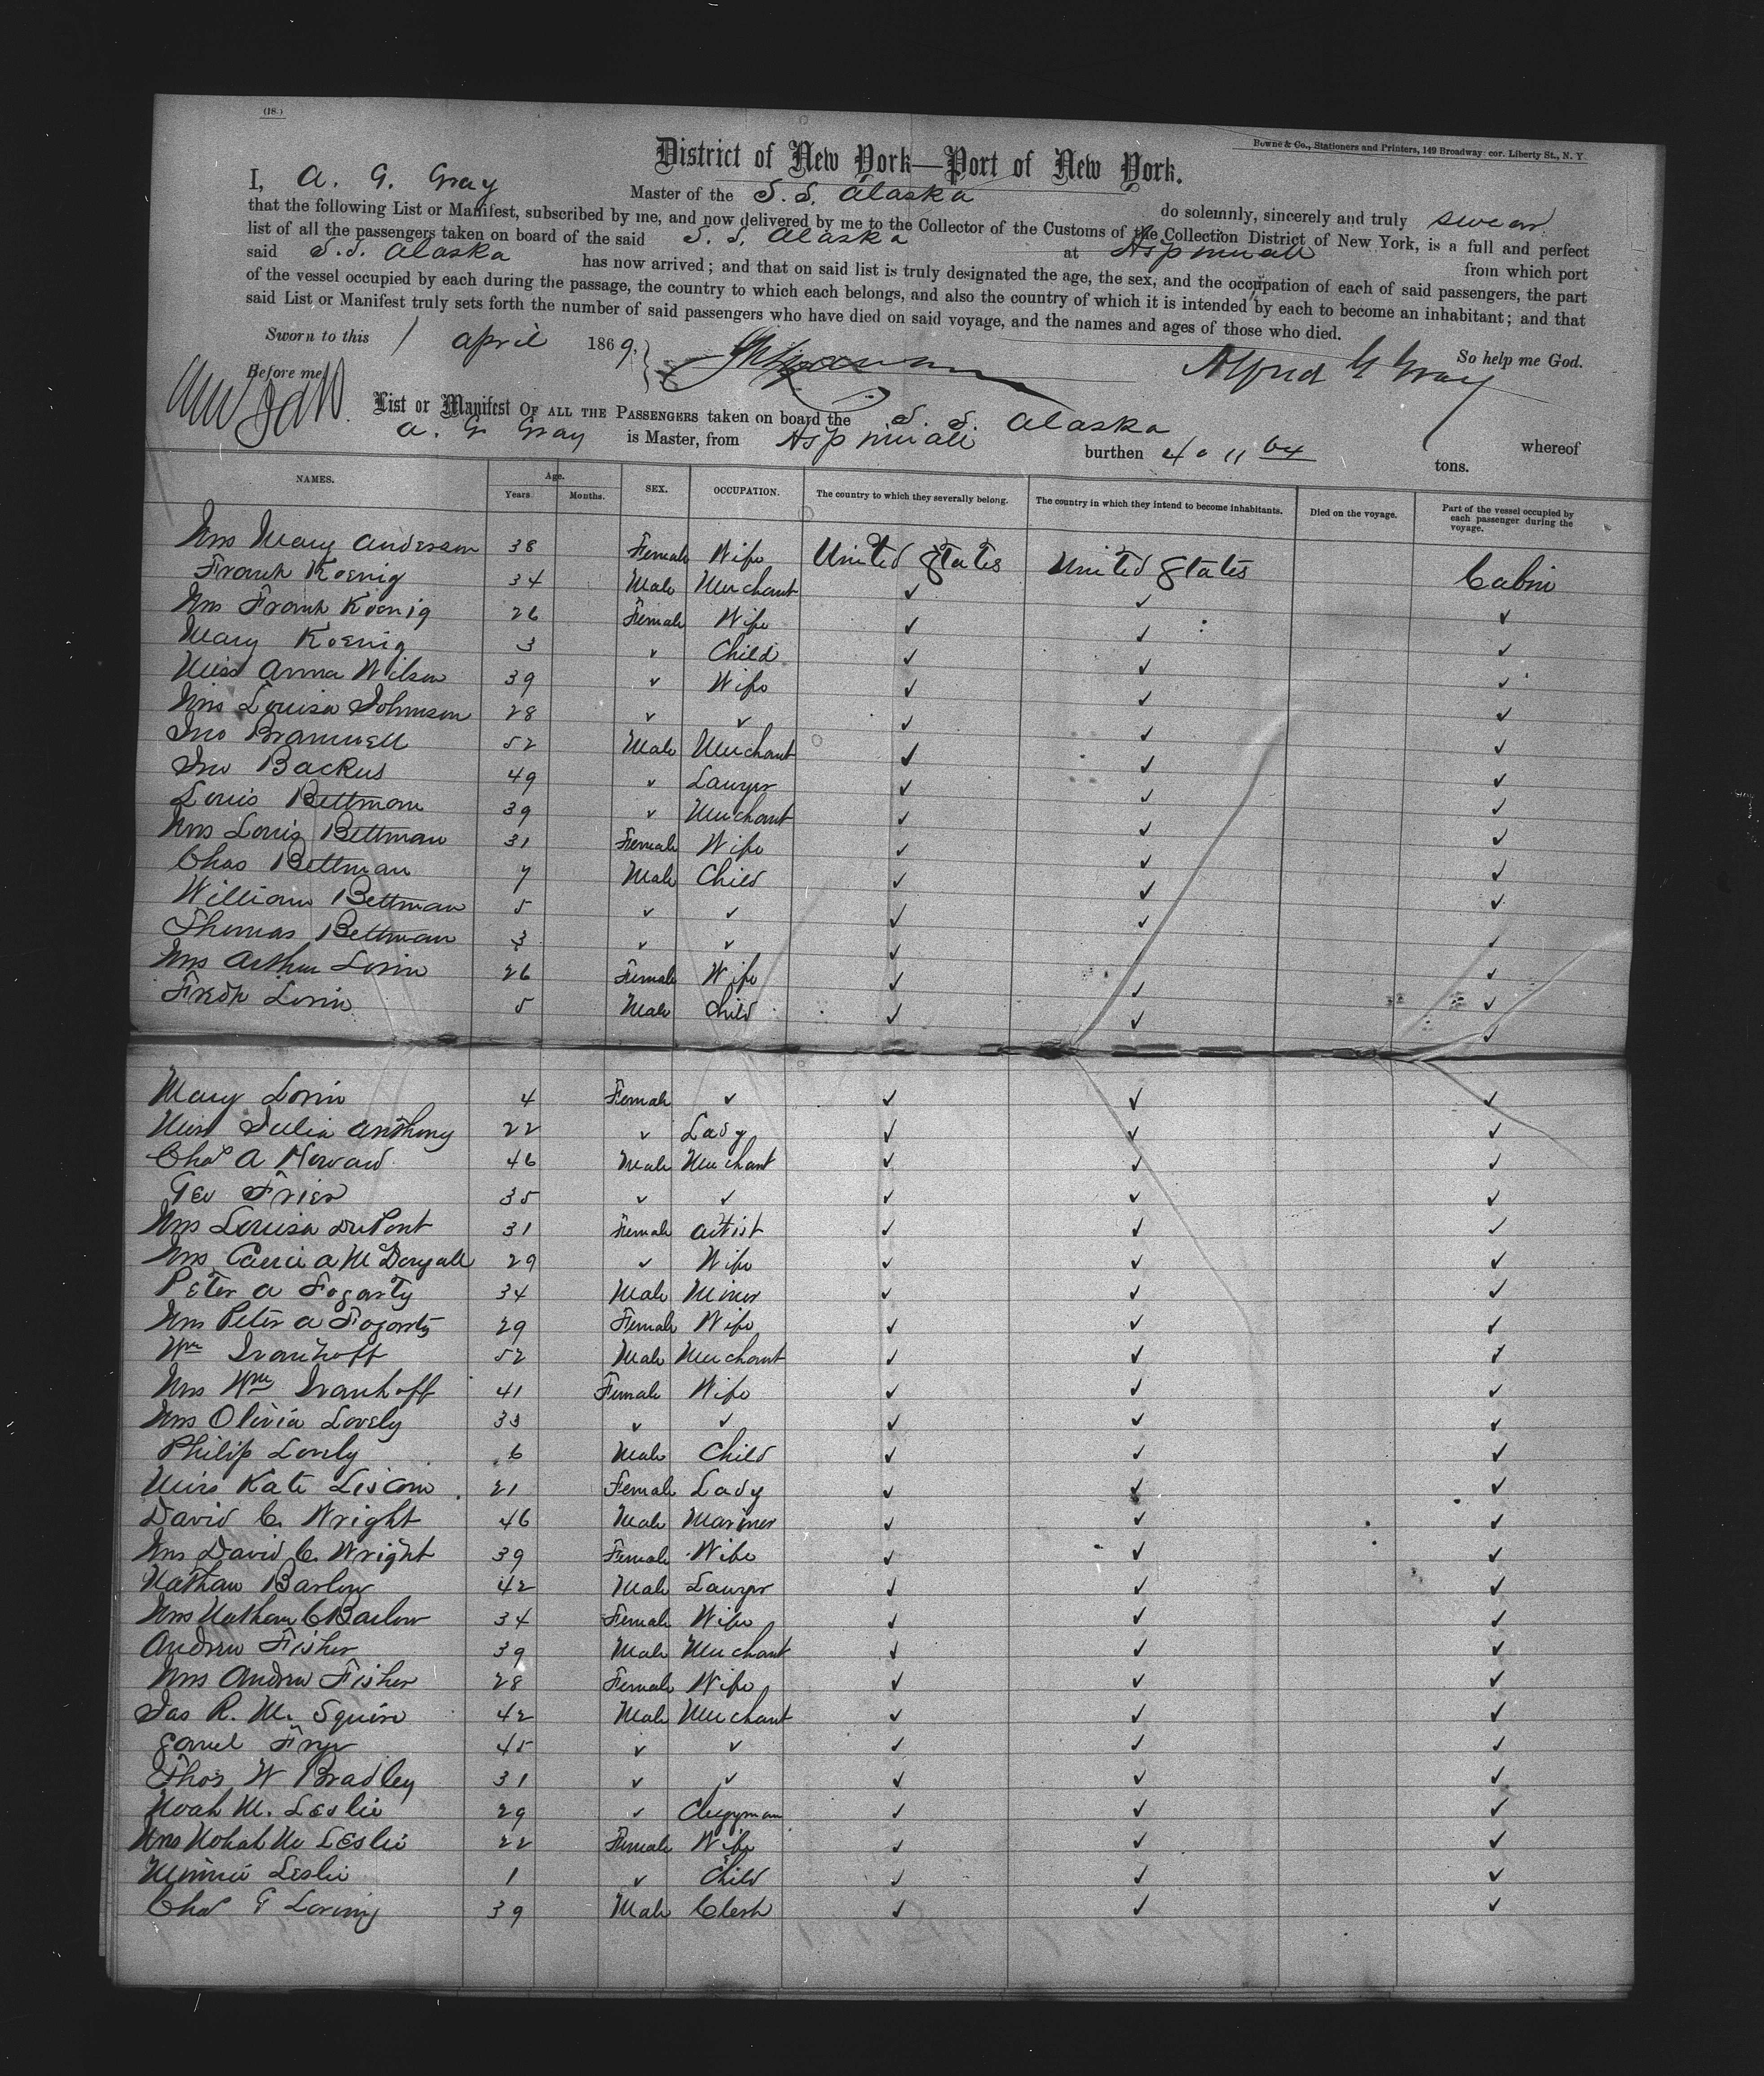 (18.)
Bowne & Co., Stationers and Printers, 149 Broadway cor. Liberty St., N. Y.
District of New York—Port of New York.
I, A. G. Gray Master of the S. S. Alaska do solemnly, sincerely and truly swear
that the following List or Manifest, subscribed by me, and now delivered by me to the Collector of the Customs of the Collection District of New York, is a full and perfect
list of all the passengers taken on board of the said S. S. Alaska at Aspinwall from which port
said S. S. Alaska has now arrived; and that on said list is truly designated the age, the sex, and the occupation of each of said passengers, the part
of the vessel occupied by each during the passage, the country to which each belongs, and also the country of which it is intended by each to become an inhabitant; and that
said List or Manifest truly sets forth the number of said passengers who have died on said voyage, and the names and ages of those who died.
Sworn to this 1 April 1869. So help me God.
Before me Alfred G Gray
List or Manifest OF ALL THE PASSENGERS taken on board the S. S. Alaska whereof
A. G Gray is Master, from Aspinwall burthen 4011 64 tons.
NAMES. Age. Years. Months. SEX. OCCUPATION. The country to which they severally belong. The country in which they intend to become inhabitants. Died on the voyage. Part of the vessel occupied by each passenger during the voyage.
Mrs Mary Anderson 38 Female Wife United States United States Cabin
Frank Koenig 34 Male Merchant ✓ ✓ ✓
Mrs Frank Koenig 26 Female Wife ✓ ✓ ✓
Mary Koenig 3 ✓ Child ✓ ✓ ✓
Miss Anna Wilson 39 ✓ Wife ✓ ✓ ✓
Mrs Louisa Johnson 28 ✓ ✓ ✓ ✓ ✓
Jno Bramwell 52 Male Merchant ✓ ✓ ✓
Jno Backus 49 ✓ Lawyer ✓ ✓ ✓
Louis Bettman 39 ✓ Merchant ✓ ✓ ✓
Mrs Louis Bettman 31 Female Wife ✓ ✓ ✓
Chas Bettman 7 Male Child ✓ ✓ ✓
William Bettman 5 ✓ ✓ ✓ ✓ ✓
Thomas Bettman 3 ✓ ✓ ✓ ✓
Mrs Arthur Lorin 26 Female Wife ✓ ✓ ✓
Fredk Lorin 5 Male Child ✓ ✓ ✓
Mary Lorin 4 Female ✓ ✓ ✓ ✓
Miss Julia Anthony 22 ✓ Lady ✓ ✓ ✓
Chas A Howard 46 Male Merchant ✓ ✓ ✓
Geo Frier 35 ✓ ✓ ✓ ✓ ✓
Mrs Louisa DuPont 31 Female Artist ✓ ✓ ✓
Mrs A McDougall 29 ✓ Wife ✓ ✓ ✓
Peter A Fogarty 34 Male Miner ✓ ✓ ✓
Mrs Peter A Fogarty 29 Female Wife ✓ ✓ ✓
Wm Ivanhoff 52 Male Merchant ✓ ✓ ✓
Mrs Wm Ivanhoff 41 Female Wife ✓ ✓ ✓
Mrs Olivia Lovely 33 ✓ ✓ ✓ ✓ ✓
Philip Lovely 6 Male Child ✓ ✓ ✓
Miss Kate Liscom 21 Female Lady ✓ ✓ ✓
David C. Wright 46 Male Mariner ✓ ✓ ✓
Mrs David C. Wright 39 Female Wife ✓ ✓ ✓
Nathan Barlow 42 Male Lawyer ✓ ✓ ✓
Mrs Nathan C Barlow 34 Female Wife ✓ ✓ ✓
Andrew Fisher 39 Male Merchant ✓ ✓ ✓
Mrs Andrew Fisher 28 Female Wife ✓ ✓ ✓
Jas R. M. Squire 42 Male Merchant ✓ ✓ ✓
Frye 45 ✓ ✓ ✓ ✓ ✓
Thos W Bradley 31 ✓ ✓ ✓ ✓ ✓
Noah M. Leslie 29 ✓ Clergyman ✓ ✓ ✓
Mrs Nohah M Leslie 22 Female Wife ✓ ✓ ✓
Minnie Leslie 1 ✓ Child ✓ ✓ ✓
Chas G Loring 39 Male Clerk ✓ ✓ ✓